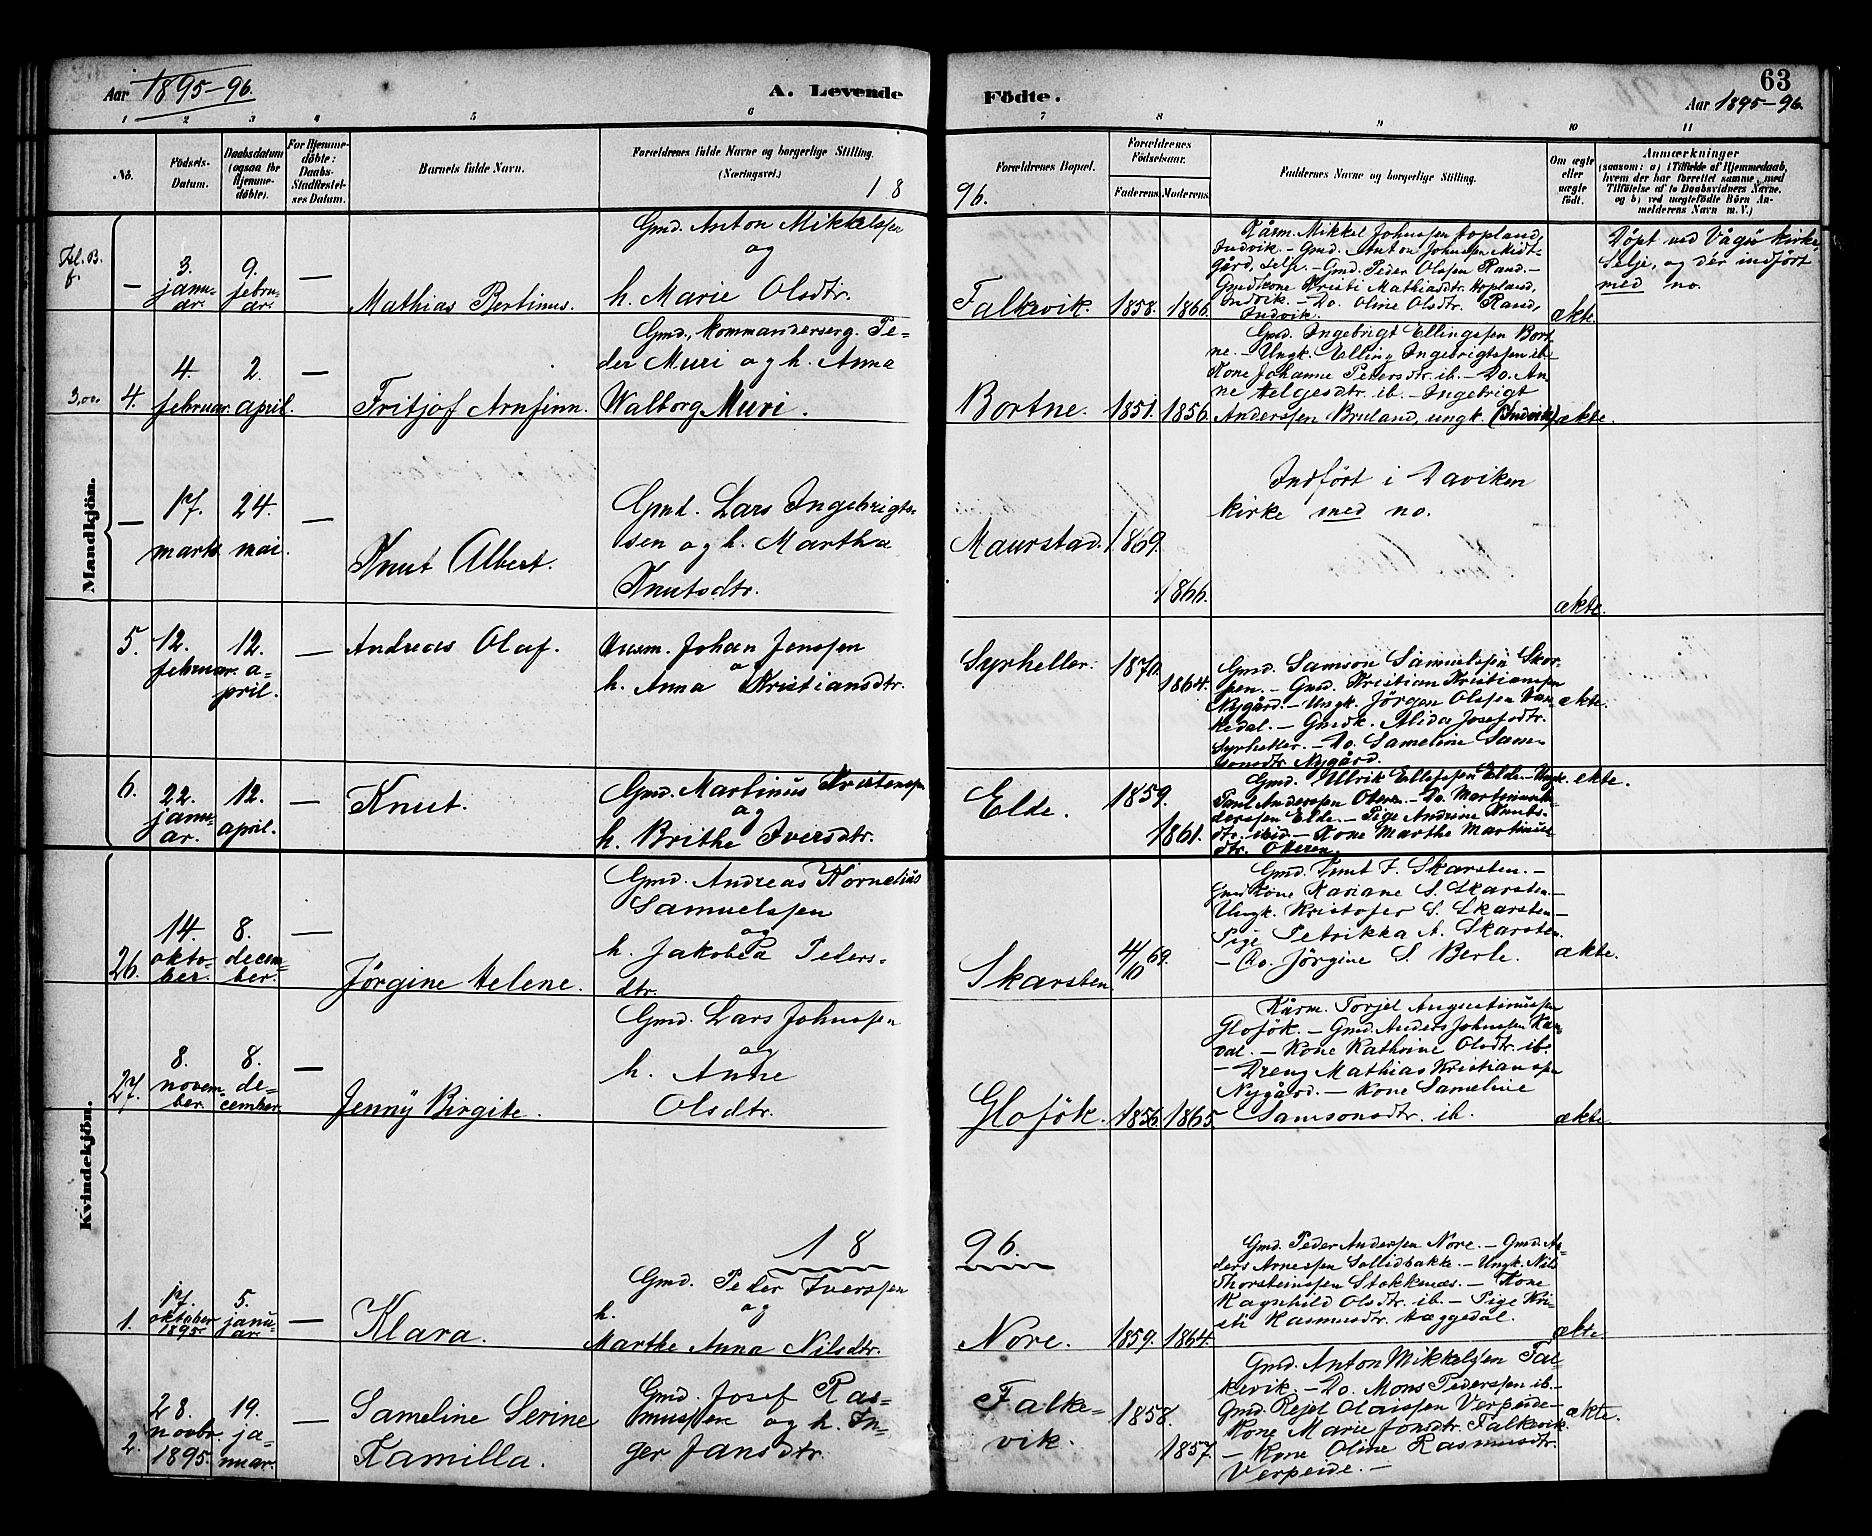 Aar 1895-96.
A. Levende Födte.
63
Aar 1895-96.
1 2 3 4 5 6 7 8 9 10 11
No.
Födsels-
Datum.
Daabsdatum
(ogsaa for
Hjemme-
döbte).
For Hjemme-
döbte:
Daabs-
Stadfæstel-
ses Datum.
Barnets fulde Navn.
Forældrenes fulde Navne og borgerlige Stilling.
(Næringsvei.)
Forældrenes Bopæl.
Forældrenes
Födselsaar.
Faderens. Moderens.
Faddernes Navne og borgerlige Stilling.
Om ægte
eller
uægte
födt.
Anmærkninger
(saasom: a) i Tilfælde af Hjemmedaab,
hvem der har forrettet samme, med
Tilföielse af to Daabsvidners Navne,
og b) ved uægtefödte Börn An-
melderens Navn m. V.)
18 96.
Mandkjön.
f.
—
3.
janu-
ar.
9.
febru-
ar.
—
Mathias Bertinus.
Gmd. Anton Mikkelssen
og
h. Marie Olsdtr.
Falkevik.
1858. 1866.
Kårm. Mikkel Johnssen Hopland,
Indvik. — Gmd. Anton Johnssen Midt-
gård, Selje. — Gmd. Peder Olssen Rand. —
Gmdkone Kristi Mathiasdtr. Hopland,
Indvik. — Do. Oline Olsdtr. Rand,
Indvik.
ækte.
Döpt ved Vågsö kirke,
Selje, og dér indfört
med no.
3,00
4.
4.
februar.
2.
april.
—
Fritjof Arnfinn.
Gmd., kommanderserg. Pe-
der Muri og h. Anna
Walborg Muri.
Bortne.
1851. 1856.
Gmd. Ingebrigt Ellingssen Bort-
ne. — Ungk. Elling Ingebrigtssen ib. —
Kone Johanne Pedersdtr. ib. — Do. An-
ne Helgesdtr. ib. — Ingebrigt
Anderssen Bruland, ungk. (Indvik)
ækte.
—
17.
marts.
24.
mai.
—
Knut Albert.
Gmd. Lars Ingebrigts-
sen og h. Martha
Knutsdtr.
Maurstad.
1869.
1866.
Indfört i Daviken
kirke med no.
ækte.
5.
12.
februar.
12.
a-
pril.
—
Andreas Olaf.
Husm. Johan Jenssen
o
h. Anna Kristiansdtr.
Syrheller.
1870.
1864.
Gmd. Samson Samuelssen Skor-
pen. — Gmd. Kristian Kristianssen
Nygård. — Ungk. Jörgen Olssen Van-
kedal. — Gmdk. Alida Josefsdtr.
Syrheller. — Do. Sameline Sam-
sonsdtr. Nygård.
ækte.
6.
22.
janu-
ar.
12.
april.
—
Knut.
Gmd. Martinus Kristenssen
og
h. Brithe Iversdtr.
Elde.
1859.
1861.
Gmd. Ullrik Ellefssen Elde. — Ungk.
Paul Anderssen Oteren. — Do. Martinus An-
derssen Elde. — Pige Andrine Knuts-
dtr. ibid — Kone Marthe Martinus-
dtr. Oteren.
ækte.
Kvindekjön.
26.
14.
okto-
ber.
8.
decem-
ber.
—
Jörgine Helene.
Gmd. Andreas Kornelius
Samuelssen
og
h. Jakobea Peders-
dtr.
Skarsten
4/10 69.
Gmd. Knut F. Skarsten. —
Gmdkone Kariane S. Skarsten —
Ungk. Kristofer S. Skarsten —
Pige Petrikka A. Skarsten.
— Do. Jörgine S. Berle.
ækte.
27.
8.
novem-
ber.
8.
de-
cember.
—
Jenny Birgite.
Gmd. Lars Johnssen
og
h. Anne
Olsdtr.
Glofök.
1856. 1865.
Kårm. Torjel Augustinussen
Glofök. — Gmd. Anders Johnssen Kan-
dal. — Kone Kathrine Olsdtr. ib.
— Dreng Mathias Kristianssen
Nygård. — Kone Sameline
Samsonsdtr. ib.
ækte.
18 96.
1.
17.
oktober
1895
5.
janu-
ar.
—
Klara.
Gmd. Peder Iverssen
og
h.
Marthe Anna Nilsdtr.
Nore.
1859. 1864.
Gmd. Peder Anderssen Nore. — Gmd. An-
ders Arnessen Sollidbakke. — Ungk. Nils
Thorsteinssen Stokkenæs. — Kone
Ragnhild Olsdtr. ib. — Pige Kri-
sti Rasmusdtr. Hæggedal.
ækte
2.
28.
novbr.
1895.
19.
ja-
nuar.
—
Sameline Serine
Kamilla.
Gmd. Josef Ras-
mussen og h. In-
ger Jansdtr.
Falke-
vik.
1858.
1857.
Gmd. Anton Mikkelssen Fal-
kevik. — Do. Mons Pederssen ib. —
Gmd. Rejel Olaissen Verpeide —
Kone Marie Jonsdtr. Falkevik.
— Kone Oline Rasmusdtr.
Verpeide. —
ækte.